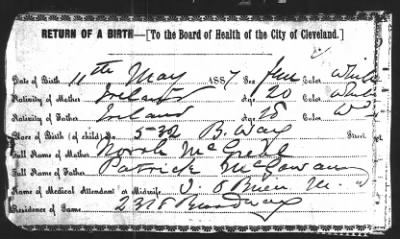 RETURN OF A BIRTH—[To the Board of Health of the City of Cleveland.]
Date of Birth 11th May 1887 Sex Fem Color White
Nativity of Mother Ireland Age 20 Color White
Nativity of Father Ireland Age 28 Color W
Place of Birth (of child) No. 532 B. Way Street
Full Name of Mother Norah
Full Name of Father Patrick McGowan
Name of Medical Attendant or Midwife J. O Brien M. d
Residence of Same 2318 Broadway